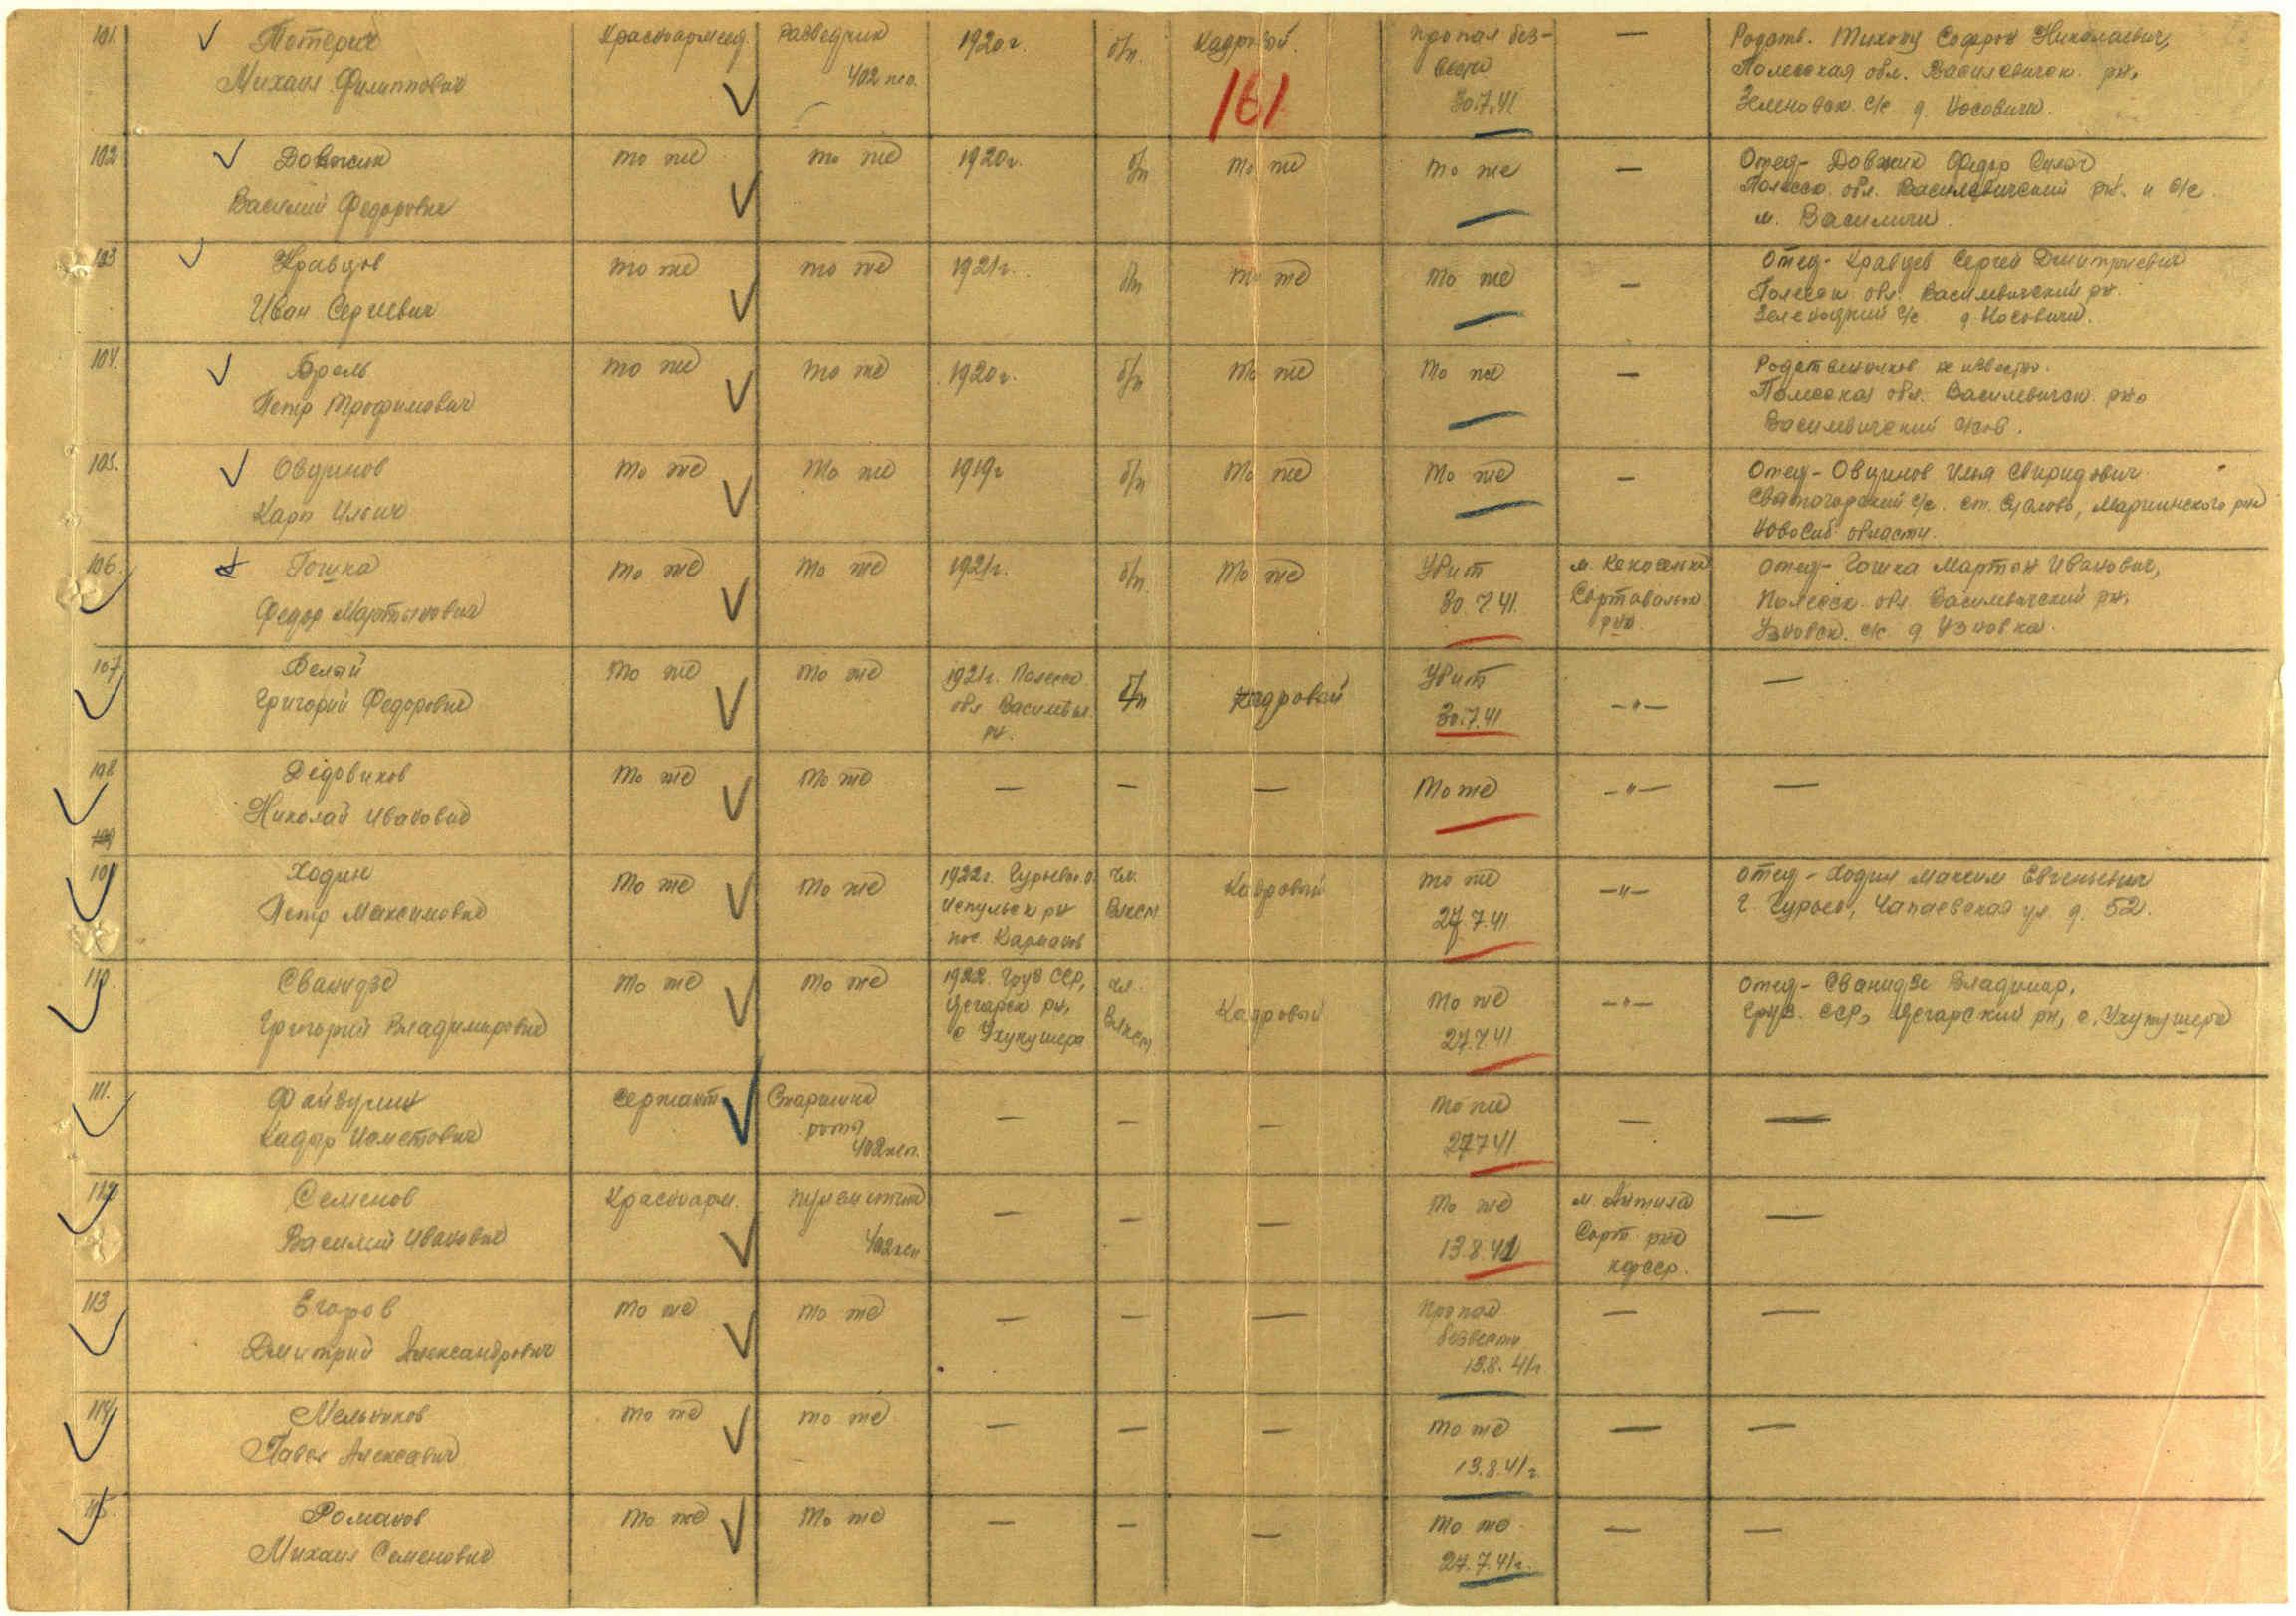 101. Потерух Красноармеец. разведчик 1920 г. б/п. Кадровый. Пропал без- — Родств. Тихону Софрон Николаевич,
Михаил Филиппович 402 псп. вести Полесская обл. Василевичск. рн,
161 30.7.41 Зеленовск. с/с д. Носовичи.
102 Довжик то же то же 1920 г. б/п то же то же — Отец- Довжик Федор
Василий Федорович Полесск. обл. Василевичский рн. и с/с
м. Василичи.
103 Кравцов то же то же 1921 г. б/п то же то же — Отец- Кравцев Сергей Дмитриевич
Иван Сергеевич Полесск. обл. Василевичский рн.
с/с д. Носовичи.
104. Брель то же то же 1920 г. б/п то же то же — Родственников не известно.
Петр Трофимович Полесская обл. Василевичск. рн.
Василевичский с/сов.
105. Овчинов то же то же 1919 г б/п то же то же — Отец- Овчинов Илья Свиридович
Карп Ильич Святогорский с/с. ст. Суслово, Мариинского рна
Новосиб. области.
106. Гошка то же то же 1921 г. б/п то же Убит м. Отец- Гошка Мартын Иванович,
Федор Мартынович 30.7.41. Сортавальск Полесск. обл. Василевичский рн,
рна. Узновск. с/с д Узновка.
107 Белый то же то же 1921 г. Полесск б/п Кадровый Убит —"— —
Григорий Федорович обл Василевич. 30.7.41
рн.
108 Дедовиков то же то же — — — То же —"— —
Николай Иванович
109
109 Ходин то же то же 1922 г. Гурьевск. о. Чл. Кадровый то же —"— Отец- Ходин Максим Евгеньевич
Петр Максимович рн ВЛКСМ 27.7.41 г. Гурьев, Чапаевская ул. д. 52.
пос. Карманов
110. Сванидзе то же то же 1922. Груз ССР, чл. Кадровый то же —"— Отец- Сванидзе Владимир,
Григорий Владимирович Цегарск рн, ВЛКСМ 27.7.41 Груз. ССР, Цегарский рн, с. Ухупушера
с Ухупушера
111. Файзулин Сержант Старшина — — — то же — —
Кадар роты 27.7.41
402псп.
112 Семенов Красноарм. пулеметчик — — — То же м. Антила —
Василий Иванович 402псп 13.8.41 Сорт. рна
КФССР.
113 Егоров то же то же — — — Пропал — —
Дмитрий Александрович без вести
13.8.41 г.
114 Мельников то же то же — — — то же — —
Павел Алексеевич 13.8.41 г.
115. Романов то же то же — — — то же — —
Михаил Семенович 27.7.41 г.